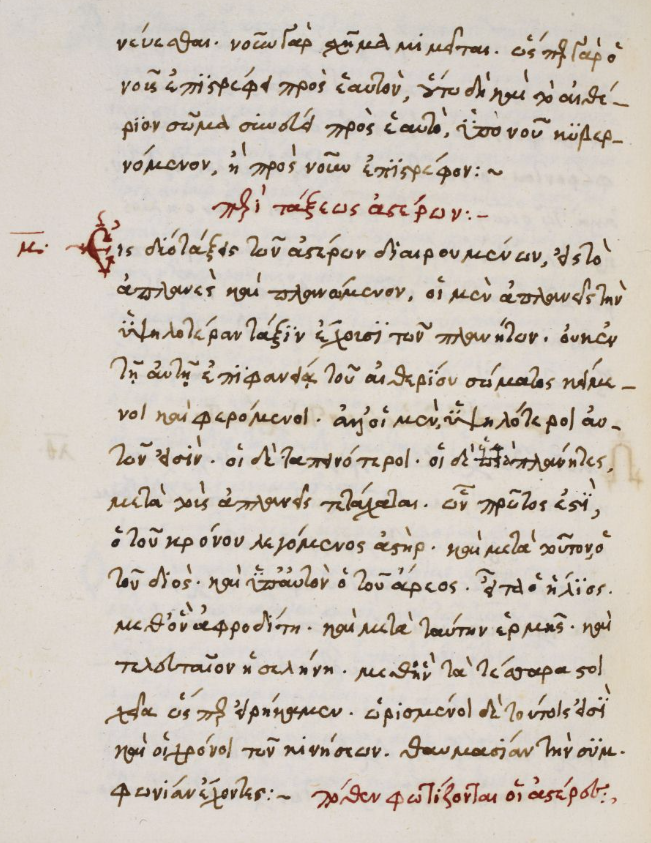 νεύεσθαι. νοῦν γὰρ σχῆμα μιμεῖται. ὥσπερ γὰρ ὁ
νοῦς ἐπιστρέφει πρὸς ἑαυτὸν, οὕτω δὴ καὶ τὸ αἰθέ–
ριον σῶμα πρὸς ἑαυτὸ, ὑπὸ νοῦ κυβερ–
νόμενον, ἢ πρὸς νοῦν ἐπιστρέφον:~
περὶ τάξεως ἀστέρων:–
μ. Εἰς δύο τάξεις τῶν ἀστέρων διαιρουμένων, εἴς τὸ
ἀπλανὲς καὶ πλανώμενον, οἱ μὲν ἀπλανεῖς τὴν
ὑψηλοτέραν τάξιν ἔχουσι τῶν πλανήτων. οὐκ ἐν
τῇ αὐτῇ ἐπιφανείᾳ τοῦ αἰθερίου σώματος κείμε–
νοι καὶ φερόμενοι. ἀλλ' οἱ μὲν, ὑψηλότεροι αὐ–
τῶν εἰσὶν. οἱ δὲ ταπεινότεροι. οἱ δὲ πλανῆτες,
μετὰ τοὺς ἀπλανεῖς τετάχαται. ὧν πρῶτος ἐστὶ,
ὁ τοῦ κρόνου λεγόμενος ἀστὴρ. καὶ μετὰ τοῦτον, ὁ
τοῦ διὸς. καὶ ὑπ' αὐτὸν ὁ τοῦ ἄρεος. εἶτα ὁ ἥλιος.
μεθ' ὃν ἀφροδίτη. καὶ μετὰ ταύτην ἑρμῆς. καὶ
τελευταῖον ἡ σελήνη. μεθ' ἣν τὰ τέσσαρα στοι
χεῖα ὥσπερ εἰρήκαμεν. ὡρισμένοι δὲ τούτοις εἰσὶ
καὶ οἱ χρόνοι τῶν κινήσεων. θαυμασίαν τὴν συμ.
φωνίαν ἔχοντες:~ πόθεν φωτίζονται οἱ ἀστέρες:,